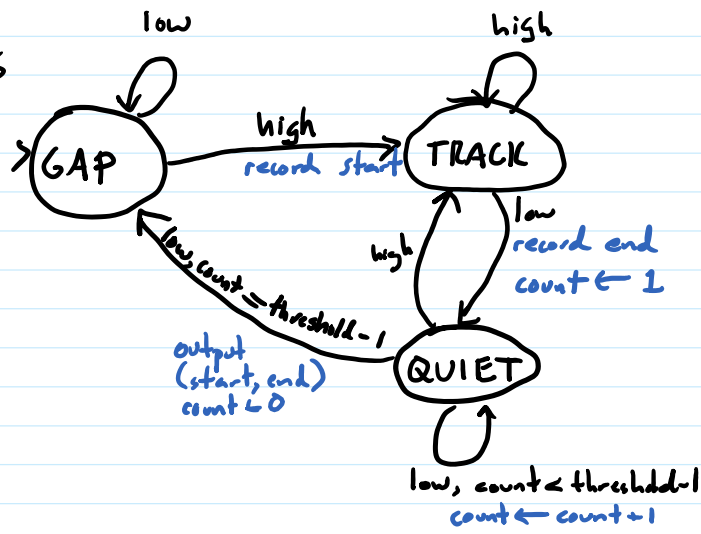 low
high
GAP
high
record start
TRACK
low
record end
count ← 1
high
low, count = threshold - 1
output
(start, end)
count ← 0
QUIET
low, count < threshold-1
count ← count + 1